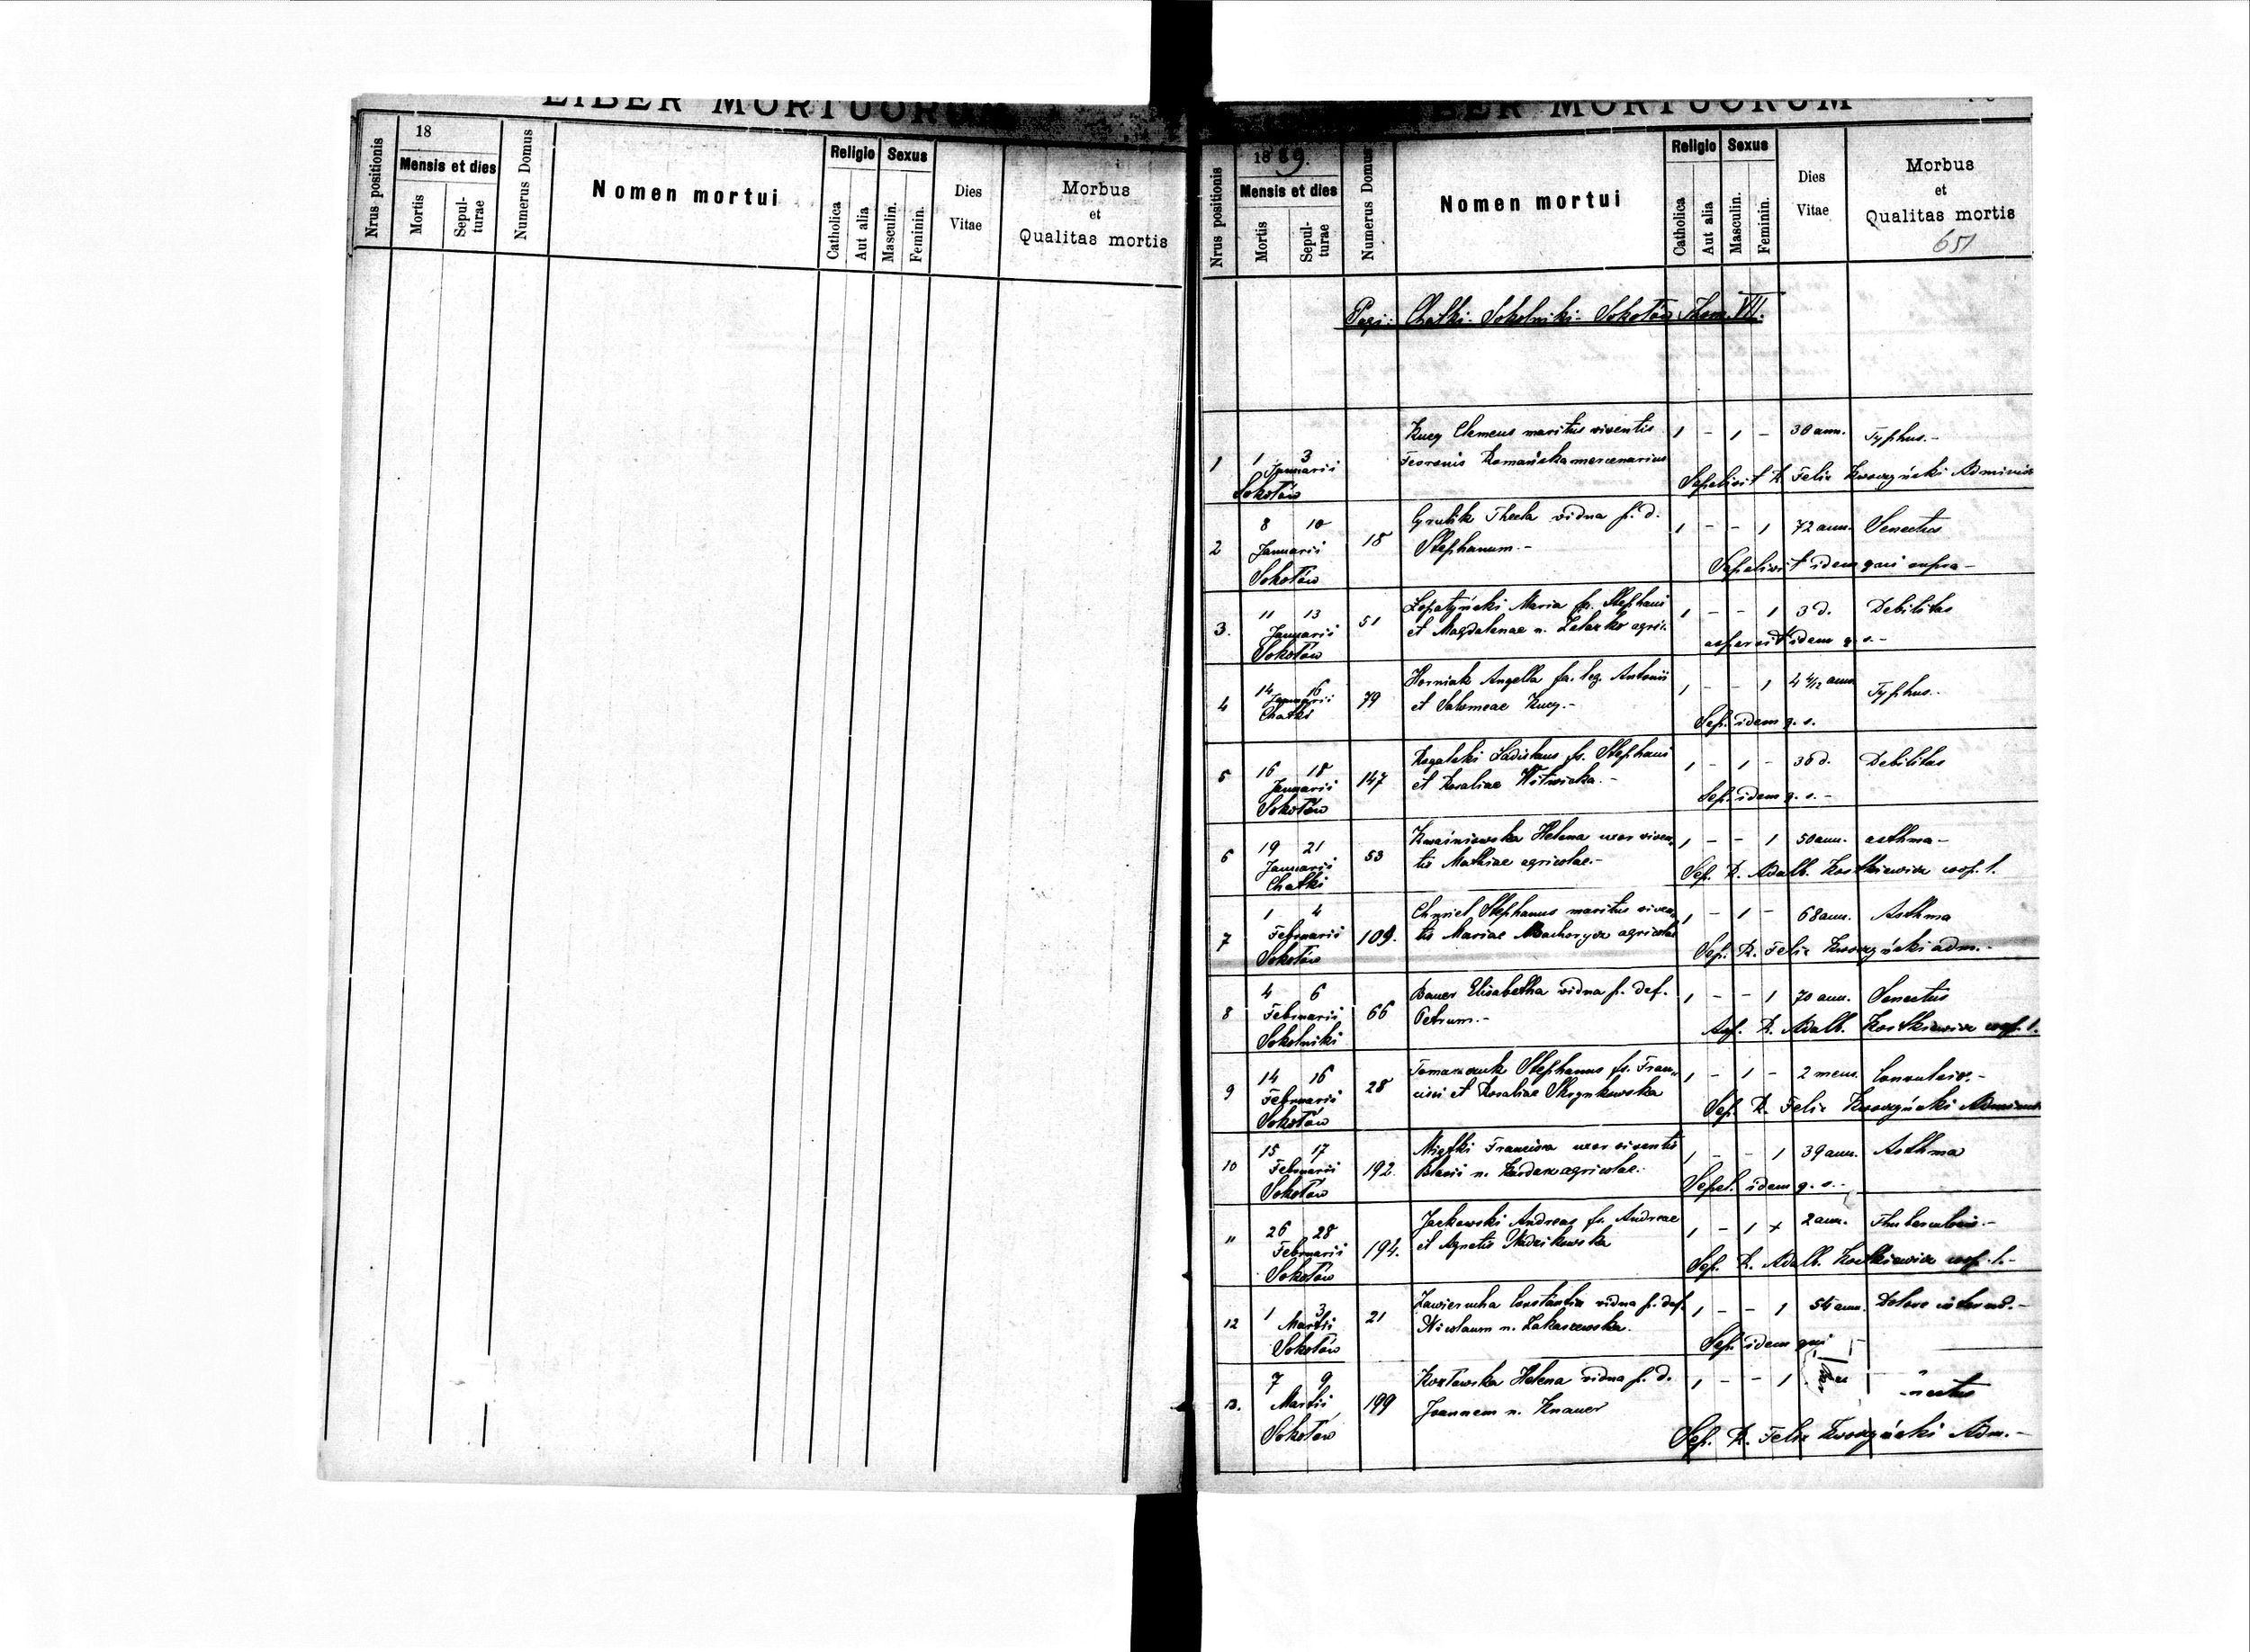 LIBER MORTUORUM
Nrus positionis
18
Mensis et dies
Mortis
Sepul-
turae
Numerus Domus
Nomen mortui
Religio
Catholica
Aut alia
Sexus
Masculin.
Feminin.
Dies
Vitae
Morbus
et
Qualitas mortis
BER MORTUORUM
Nrus positionis
1889.
Mensis et dies
Mortis
Sepul-
turae
Numerus Domus
Nomen mortui
Religio
Catholica
Aut alia
Sexus
Masculin.
Feminin.
Dies
Vitae
Morbus
et
Qualitas mortis
651
Pagi: Chatki. Sokolniki. Sokołów Thom. VII.
Kucy Clemens maritus viventis 1 - 1 - 38 ann. Typhus.-
1 1 3 Romańska mercenarius
Januarii
Sokołów Sepelivit R. Felix
8 10 Thecla vidua p. d. 1 - - 1 72 ann. Senectus
2 Januarii 18 Stephanum.-
Sokołów Sepelivit idem qui supra -
11 13 Łopatyński Maria fa. Stephani 1 - - 1 3 d. Debilitas
3. Januarii 51 et Magdalenae n. agric.
Sokołów aspersit idem q. s.-
14 16 Horniak Angella fa. leg. Antonii 1 - - 1 4 4/12 ann Typhus..
4 Januarii 79 et Salomeae Kucy.-
Chatki Sep. idem q. s.
Rogalski Ladislaus fs. Stephani 1 - 1 - 36 d. Debilitas
5 16 18 147 et Rosaliae Witwicka.-
Januarii
Sokołów Sep. idem q. s.-
Kwaśniewska Helena uxor viven- 1 - - 1 50 ann. asthma-
6 19 21 53 tis Mathiae agricolae.-
Januarii
Chatki Sep. R. Adalb. Kostkiewicz coop. l.
1 4 Chmiel Stephanus maritus viven- 1 - 1 - 68 ann. Asthma
7 Februarii 109. tis Mariae agricolae
Sokołów Sep. R. Felix adm.-
4 6 Bauer Elisabetha vidua p. def. 1 - - 1 70 ann. Senectus
8 Februarii 66 Petrum.-
Sokolniki Asp. R. Adalb. Kostkiewicz coop. l.
14 16 Tomaszczuk Stephanus fs. Fran- 1 - 1 - 2 mens.
9 Februarii 28 cisci et Rosaliae Skrynkowska
Sokołów Sep. R. Felix
15 17 Francisca uxor viventis 1 - - 1 39 ann. Asthma
10 Februarii 192. Blasii n. agricolae.
Sokołów Sepel. idem q. s.-
26 28 Jackowski Andreas fs. Andreae 1 - 1 + 2 ann.
11 Februarii 194. et Agnetis
Sokołów Sep. R. Adalb. Kostkiewicz coop. l.-
1 3 Zawierucha Constantia vidua p. def. 1 - - 1 54 ann.
12 Martii 21 Nicolaum n.
Sokołów Sep. idem qui
7 9 Kozłowska Helena vidua p. d. 1 - - 1
13. Martii 199 Joannem n. Knauer
Sokołów Sep. R. Felix Adm.-